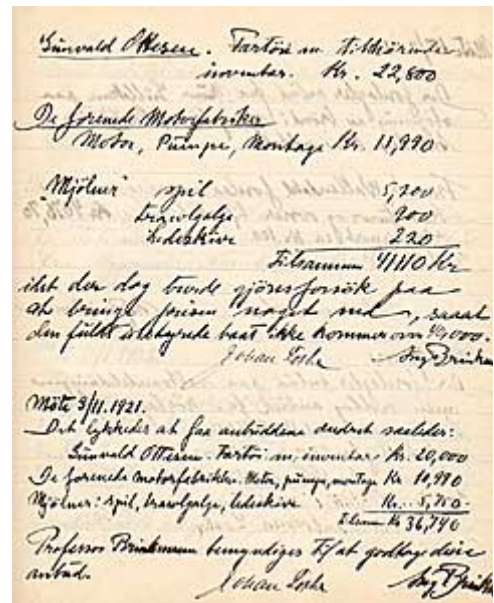 Gunvald Ottesen. Fartöi m. tilhörende
inventar. Kr. 22,800
De forenede Motorfabriker
Motor, Pumpe, Montage Kr. 11,990
"Mjölner" spil 5,200
trawlgalge 900
ledeskive 220
Tilsammen 41110 Kr
idet der dog burde gjöres forsök paa
at bringe prisen noget ned, saaat
den fuldt utstyrede baat ikke kommer over 40,000.
Johan Aug Brinkmann
Möte 9/11.1921.
Det lykkedes at faa anbuddene ændret saaledes:
Gunvald Ottesen. Fartöi m. inventar Kr. 20,000
De forenede motorfabrikker. Motor, pumpe, montage Kr 10,990
Mjölner: spil, trawlgalge, ledeskive Kr. 5,750
Tilsam Kr 36,740
Professor Brinkmann bemyndiges til at godtage disse
anbud.
Johan Aug Brinkmann